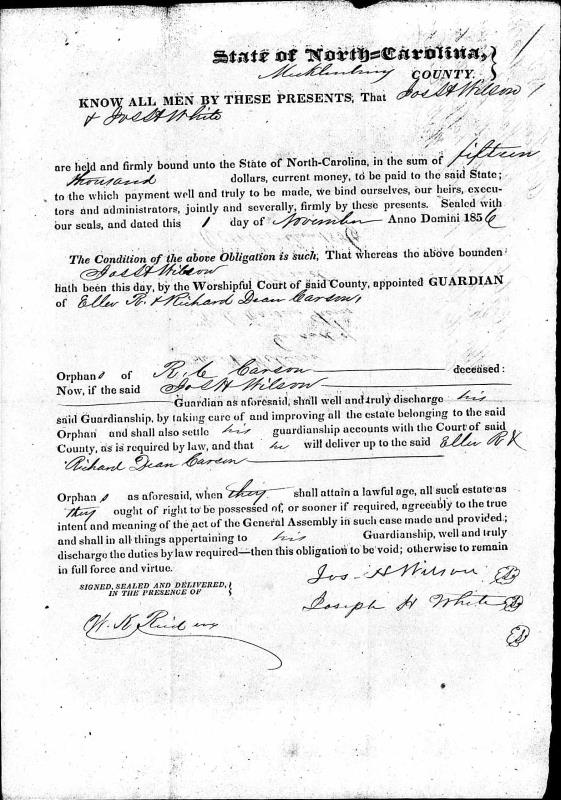 State of North-Carolina,
Mecklenburg COUNTY.
KNOW ALL MEN BY THESE PRESENTS, That Jos H Wilson
& Jos H White
are held and firmly bound unto the State of North-Carolina, in the sum of fifteen
thousand dollars, current money, to be paid to the said State;
to the which payment well and truly to be made, we bind ourselves, our heirs, execu-
tors and administrators, jointly and severally, firmly by these presents. Sealed with
our seals, and dated this 1 day of November Anno Domini 1856
The Condition of the above Obligation is such, That whereas the above bounden
Jos H Wilson
hath been this day, by the Worshipful Court of said County, appointed GUARDIAN
of Ellen R. & Richard Dean Carson,
Orphans of R. C Carson deceased:
Now, if the said Jos H Wilson
Guardian as aforesaid, shall well and truly discharge his
said Guardianship, by taking care of and improving all the estate belonging to the said
Orphan and shall also settle his guardianship accounts with the Court of said
County, as is required by law, and that he will deliver up to the said Ellen R &
Richard Dean Carson
Orphans as aforesaid, when they shall attain a lawful age, all such estate as
they ought of right to be possessed of, or sooner if required, agreeably to the true
intent and meaning of the act of the General Assembly in such case made and provided;
and shall in all things appertaining to his Guardianship, well and truly
discharge the duties by law required—then this obligation to be void; otherwise to remain
in full force and virtue.
SIGNED, SEALED AND DELIVERED,
IN THE PRESENCE OF
Jos H Wilson
Joseph H White
W. K. Reid